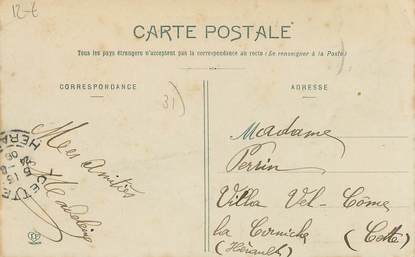 12-6
CARTE POSTALE
Tous les pays étrangers n'acceptent pas la correspondance au recto (Se renseigner à la Poste)
CORRESPONDANCE
31)
Mes amitiés
Madeleine
CETTE
HÉRA
ADRESSE
Madame
Perrin
Villa Vel-Côme
la Corniche (Cette)
(Hérault)